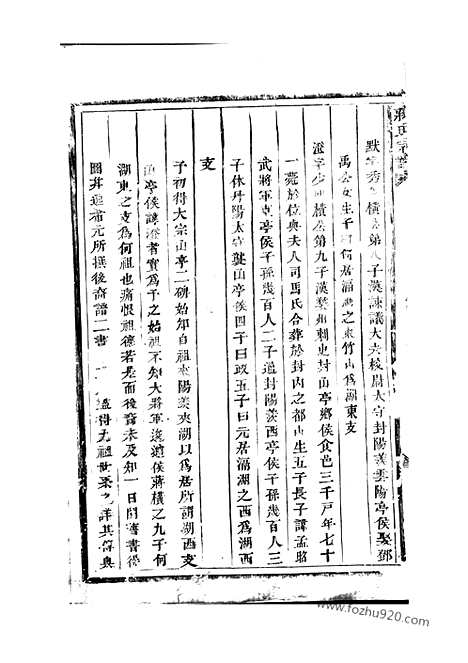 默字秀 橫公第八子漢諫議大夫校尉太守封陽羨雲陽亭侯娶鄧
禹公女生千 何居滆湖之東竹山爲湖東支
澄字少 橫公第九子漢 州刺史封山亭鄉侯食邑三千戶年七十
一薨於位與夫人司馬氏合葬於封内之都山生五子長子譚孟昭
武將軍 亭侯子孫幾百人二子通封陽羨西亭侯子孫幾百人三
子休丹陽太守襲山亭侯四子曰政五子曰元居滆湖之西爲湖西
支
予初得大宗山亭二碑始知自祖來陽羨夾湖以爲居所謂湖西支
亭侯諱澄者實爲予之始祖不知大將軍逡遒侯蔣橫之九子何
湖東之支爲何祖也痛恨祖德若是而後裔未及知一日閱舊書得
圖并 元所撰後裔譜二書 得九祖世系 詳其
www.fozhu920.com